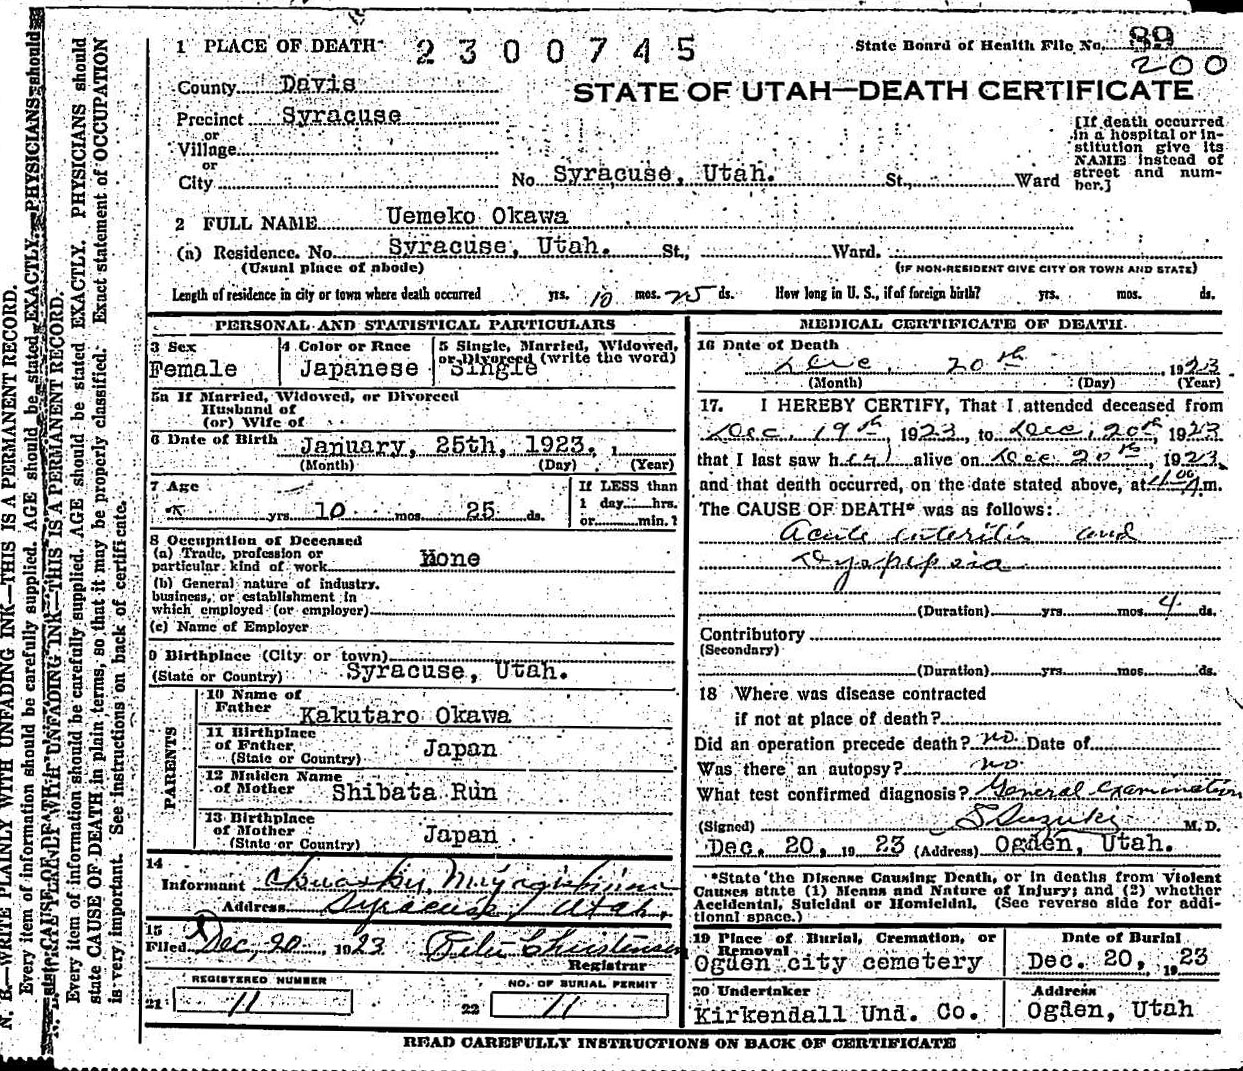 1 PLACE OF DEATH 2300745 State Board of Health File No. 89
200
County Davis
STATE OF UTAH—DEATH CERTIFICATE
Precinct Syracuse
or
Village
or
City No Syracuse, Utah. St., Ward
[If death occurred
in a hospital or in-
stitution give its
NAME instead of
street and num-
ber.]
2 FULL NAME Uemeko Okawa
(a) Residence. No. Syracuse, Utah. St., Ward.
(Usual place of abode) (IF NON-RESIDENT GIVE CITY OR TOWN AND STATE)
Length of residence in city or town where death occurred yrs. 10 mos. 25 ds. How long in U. S., if of foreign birth? yrs. mos. ds.
PERSONAL AND STATISTICAL PARTICULARS
3 Sex
Female
4 Color or Race
Japanese
5 Single, Married, Widowed,
or Divorced (write the word)
Single
5a If Married, Widowed, or Divorced
Husband of
(or) Wife of
6 Date of Birth January, 25th, 1923.
(Month) (Day) (Year)
7 Age
yrs. 10 mos. 25 ds.
If LESS than
1 day hrs.
or min.?
8 Occupation of Deceased
(a) Trade, profession or
particular kind of work None
(b) General nature of industry,
business, or establishment in
which employed (or employer)
(c) Name of Employer
9 Birthplace (City or town)
(State or Country) Syracuse, Utah.
PARENTS
10 Name of
Father Kakutaro Okawa
11 Birthplace
of Father Japan
(State or Country)
12 Maiden Name
of Mother Shibata Run
13 Birthplace
of Mother Japan
(State or Country)
14
Informant
Address Syracuse, Utah.
15
Filed Dec, 20, 1923 Peter Christensen
Registrar
REGISTERED NUMBER
21 11
NO. OF BURIAL PERMIT
22 11
MEDICAL CERTIFICATE OF DEATH
16 Date of Death
Dec. 20th 1923
(Month) (Day) (Year)
17. I HEREBY CERTIFY, That I attended deceased from
Dec. 19th, 1923, to Dec. 20th, 1923
that I last saw her alive on Dec 20th, 1923,
and that death occurred, on the date stated above, at 4:00 A.m.
The CAUSE OF DEATH* was as follows:
Acute enteritis and
Dyspepsia
(Duration) yrs. mos. 4 ds.
Contributory
(Secondary)
(Duration) yrs. mos. ds.
18 Where was disease contracted
if not at place of death?
Did an operation precede death? no. Date of
Was there an autopsy? no
What test confirmed diagnosis? General Examination
(Signed) S Suzuki M. D.
Dec. 20, 19 23 (Address) Ogden, Utah.
*State the Disease Causing Death, or in deaths from Violent
Causes state (1) Means and Nature of Injury; and (2) whether
Accidental, Suicidal or Homicidal. (See reverse side for addi-
tional space.)
19 Place of Burial, Cremation, or
Removal
Ogden city cemetery
Date of Burial
Dec. 20, 19 23
20 Undertaker
Kirkendall Und. Co.
Address
Ogden, Utah
READ CAREFULLY INSTRUCTIONS ON BACK OF CERTIFICATE
N. B.—WRITE PLAINLY WITH UNFADING INK—THIS IS A PERMANENT RECORD.
Every item of information should be carefully supplied. AGE should be stated EXACTLY. PHYSICIANS should
Every item of information should be carefully supplied. AGE should be stated EXACTLY. PHYSICIANS should
state CAUSE OF DEATH in plain terms, so that it may be properly classified. Exact statement of OCCUPATION
is very important. See instructions on back of certificate.